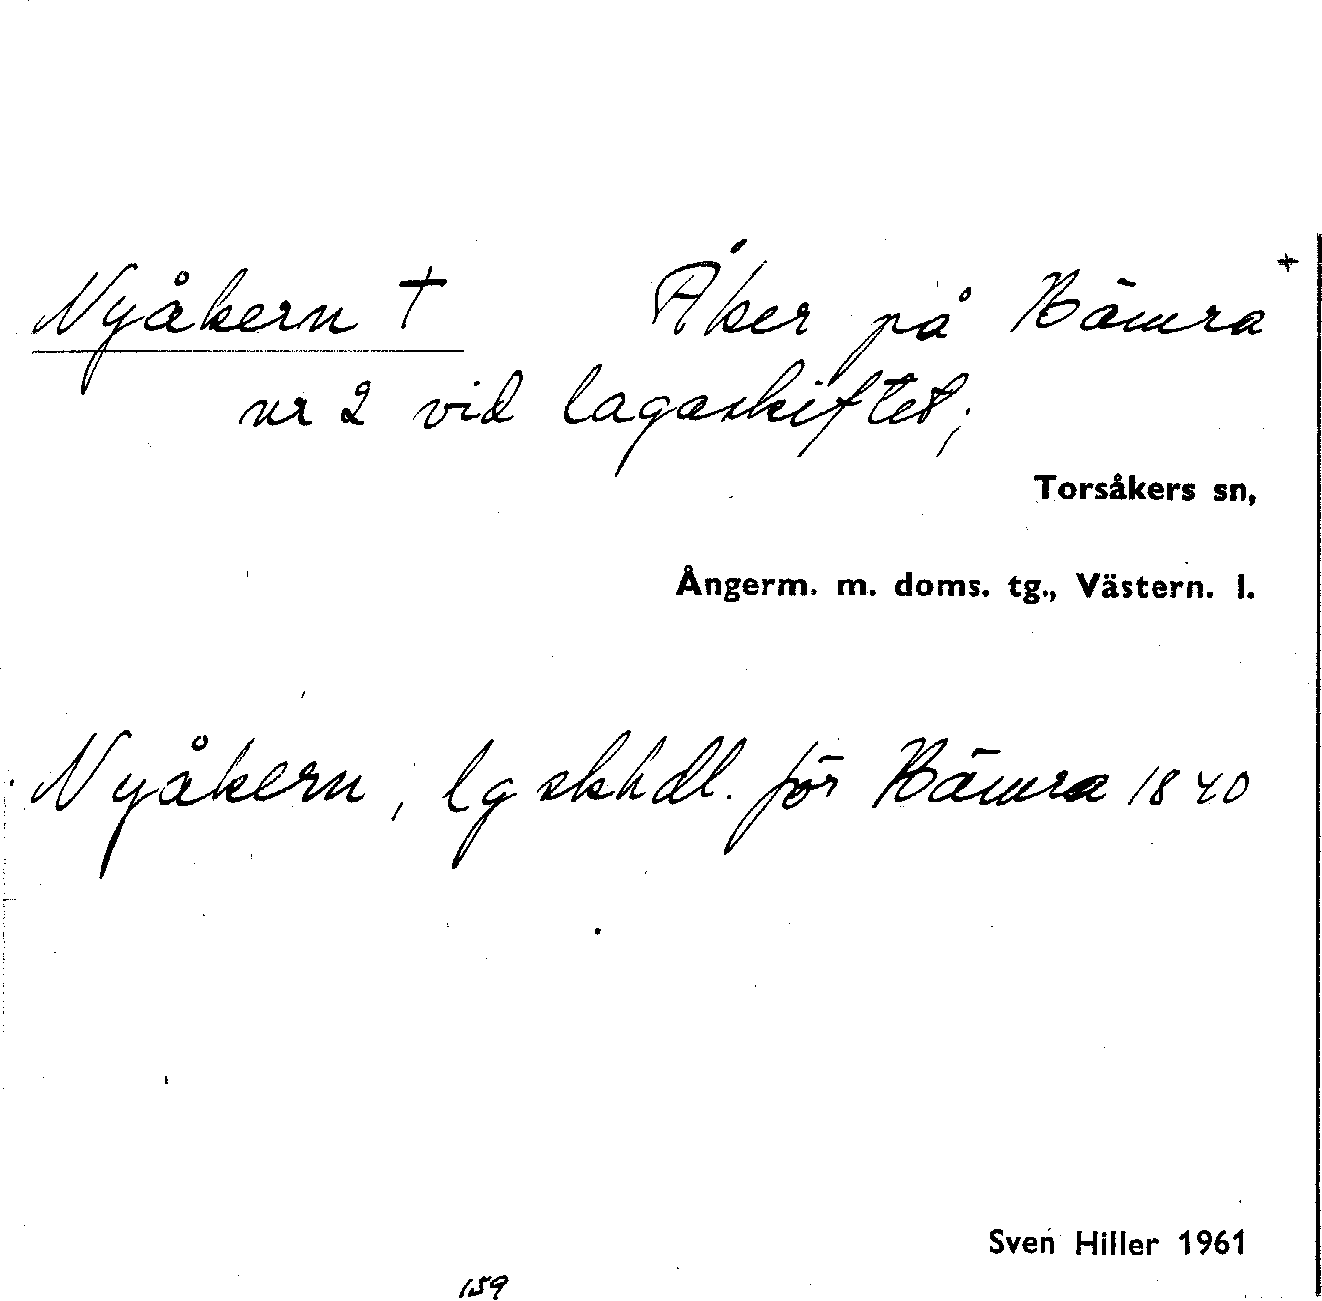 Nyåkern † Åker på Bämra +
nr 2 vid lagaskiftet;
Torsåkers sn,
Ångerm. m. doms. tg., Västern. l.
Nyåkern, lg skhdl. för Bämra 1840
Sven Hiller 1961
159